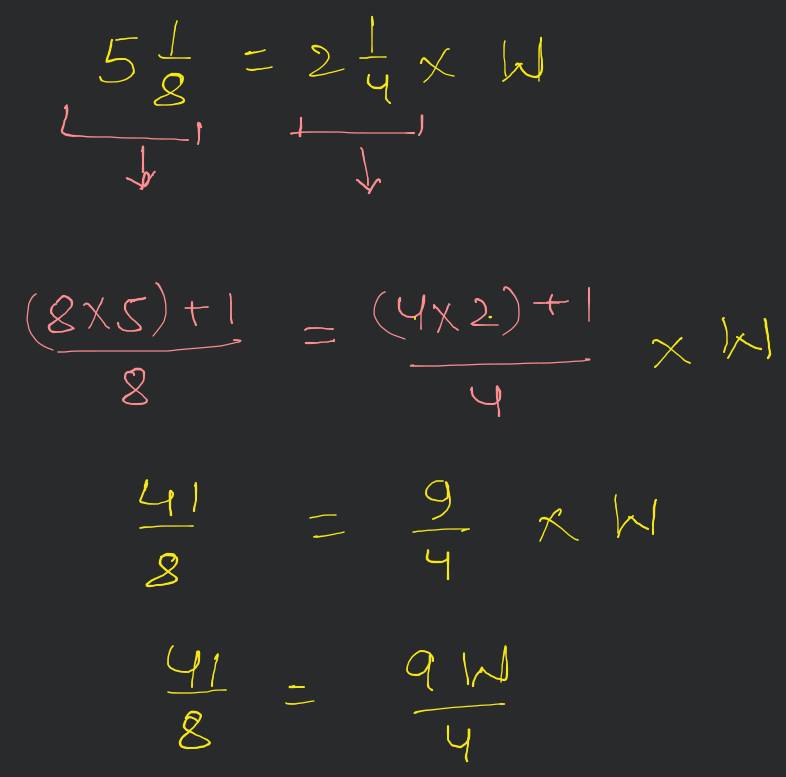 5 1/8 = 2 1/4 × W
((8×5)+1)/8 = ((4×2)+1)/4 × W
41/8 = 9/4 × W
41/8 = 9W/4